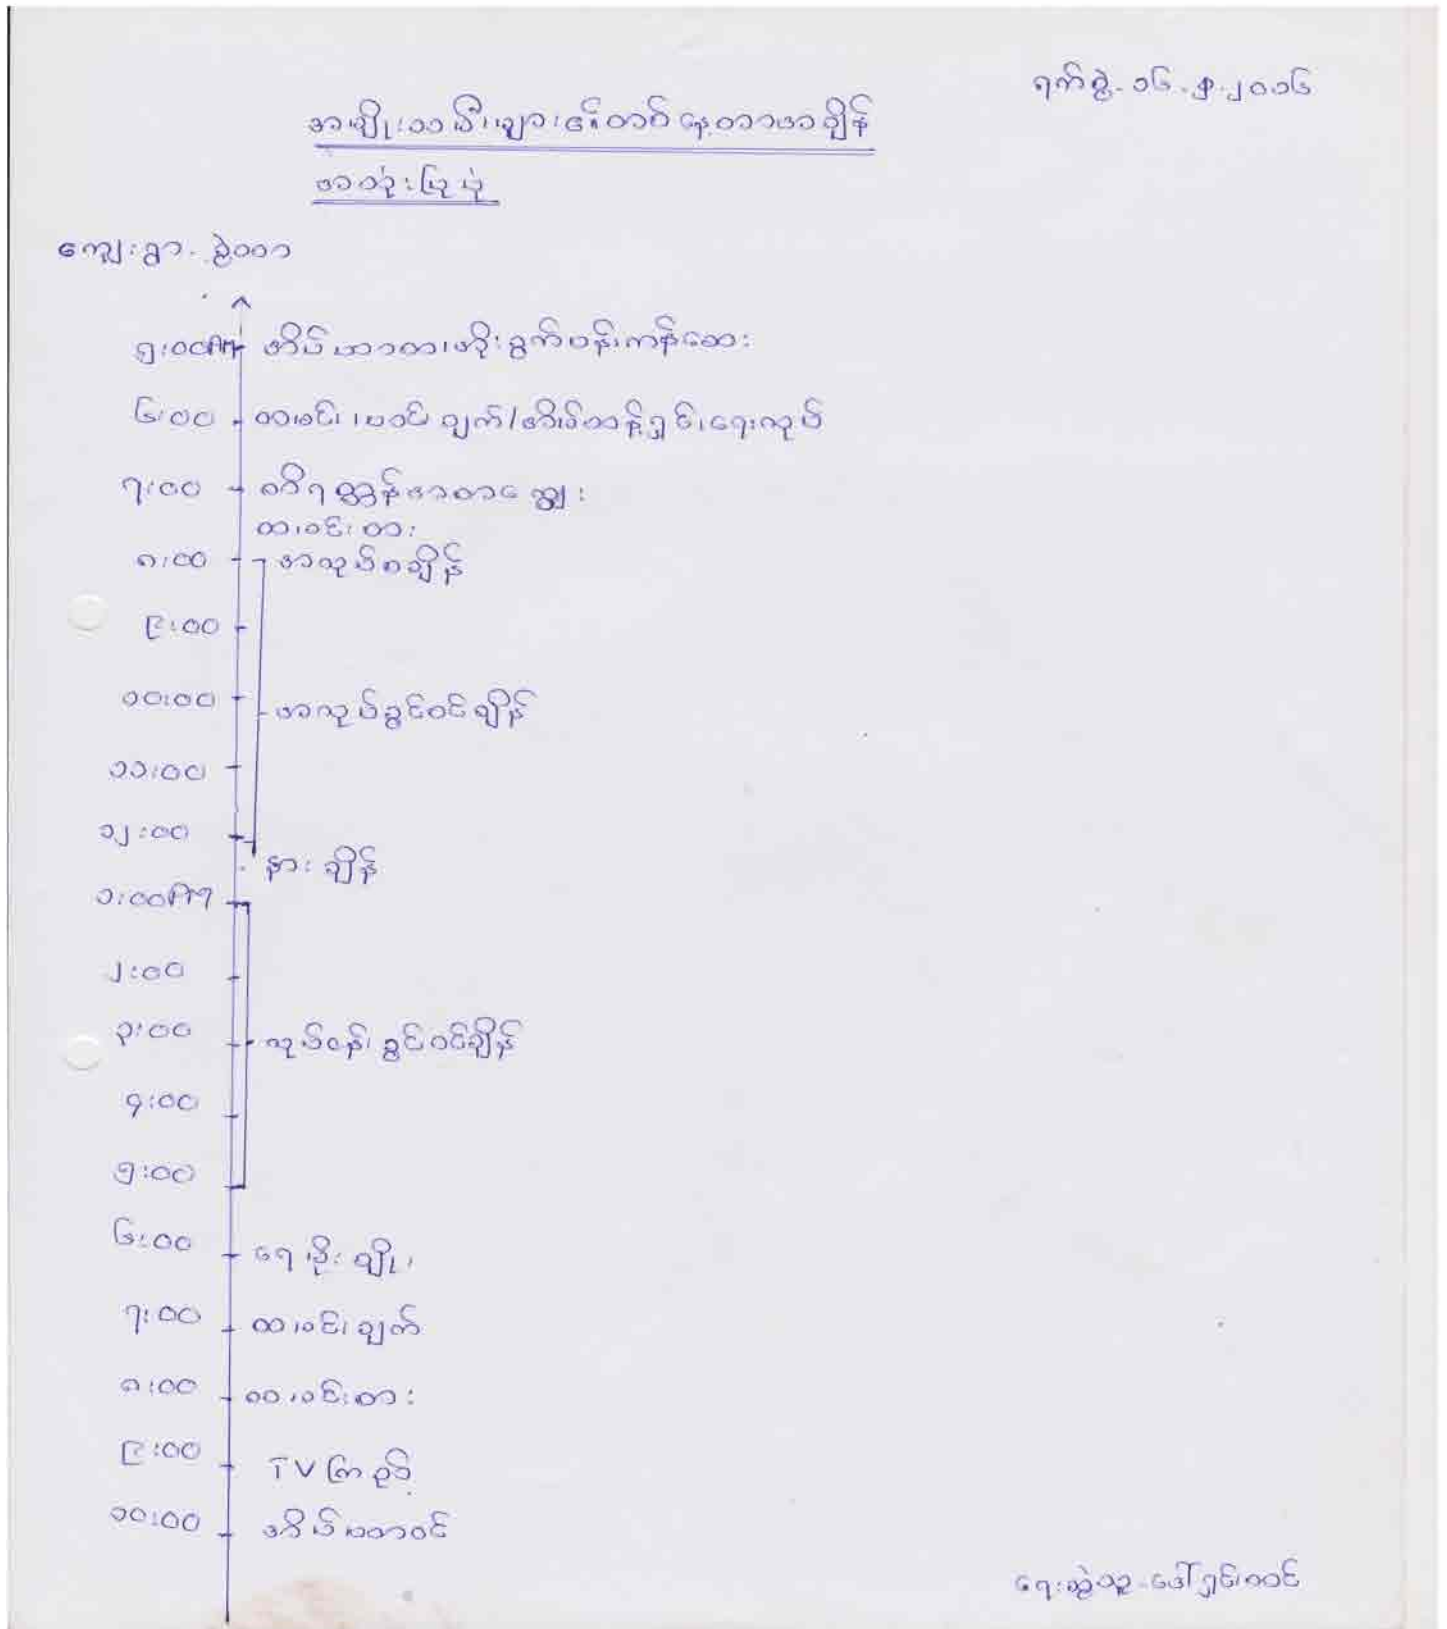 ရက်စွဲ-၁၆-၂-၂၀၁၆
အမျိုးသမီးများ၏တစ်နေ့တာအချိန်
အသုံးပြုပုံ
ကျေးရွာ-
၅:၀၀AM အိပ်ယာထ၊
၆:၀၀ ထမင်း၊ဟင်းချက်/အိမ်သန့်ရှင်းရေးလုပ်
၇:၀၀ တိရစ္ဆာန်အစာကျွေး
ထမင်းစား
၈:၀၀ အလုပ်စချိန်
၉:၀၀
၁၀:၀၀ အလုပ်ခွင်ဝင်ချိန်
၁၁:၀၀
၁၂:၀၀
နားချိန်
၁:၀၀PM
၂:၀၀
၃:၀၀ လုပ်ငန်းခွင်ဝင်ချိန်
၄:၀၀
၅:၀၀
၆:၀၀ ရေမိုးချိုး
၇:၀၀ ထမင်းချက်
၈:၀၀ ထမင်းစား
၉:၀၀ TV ကြည့်
၁၀:၀၀ အိပ်ယာဝင်
ရေးဆွဲသူ-ဒေါ်